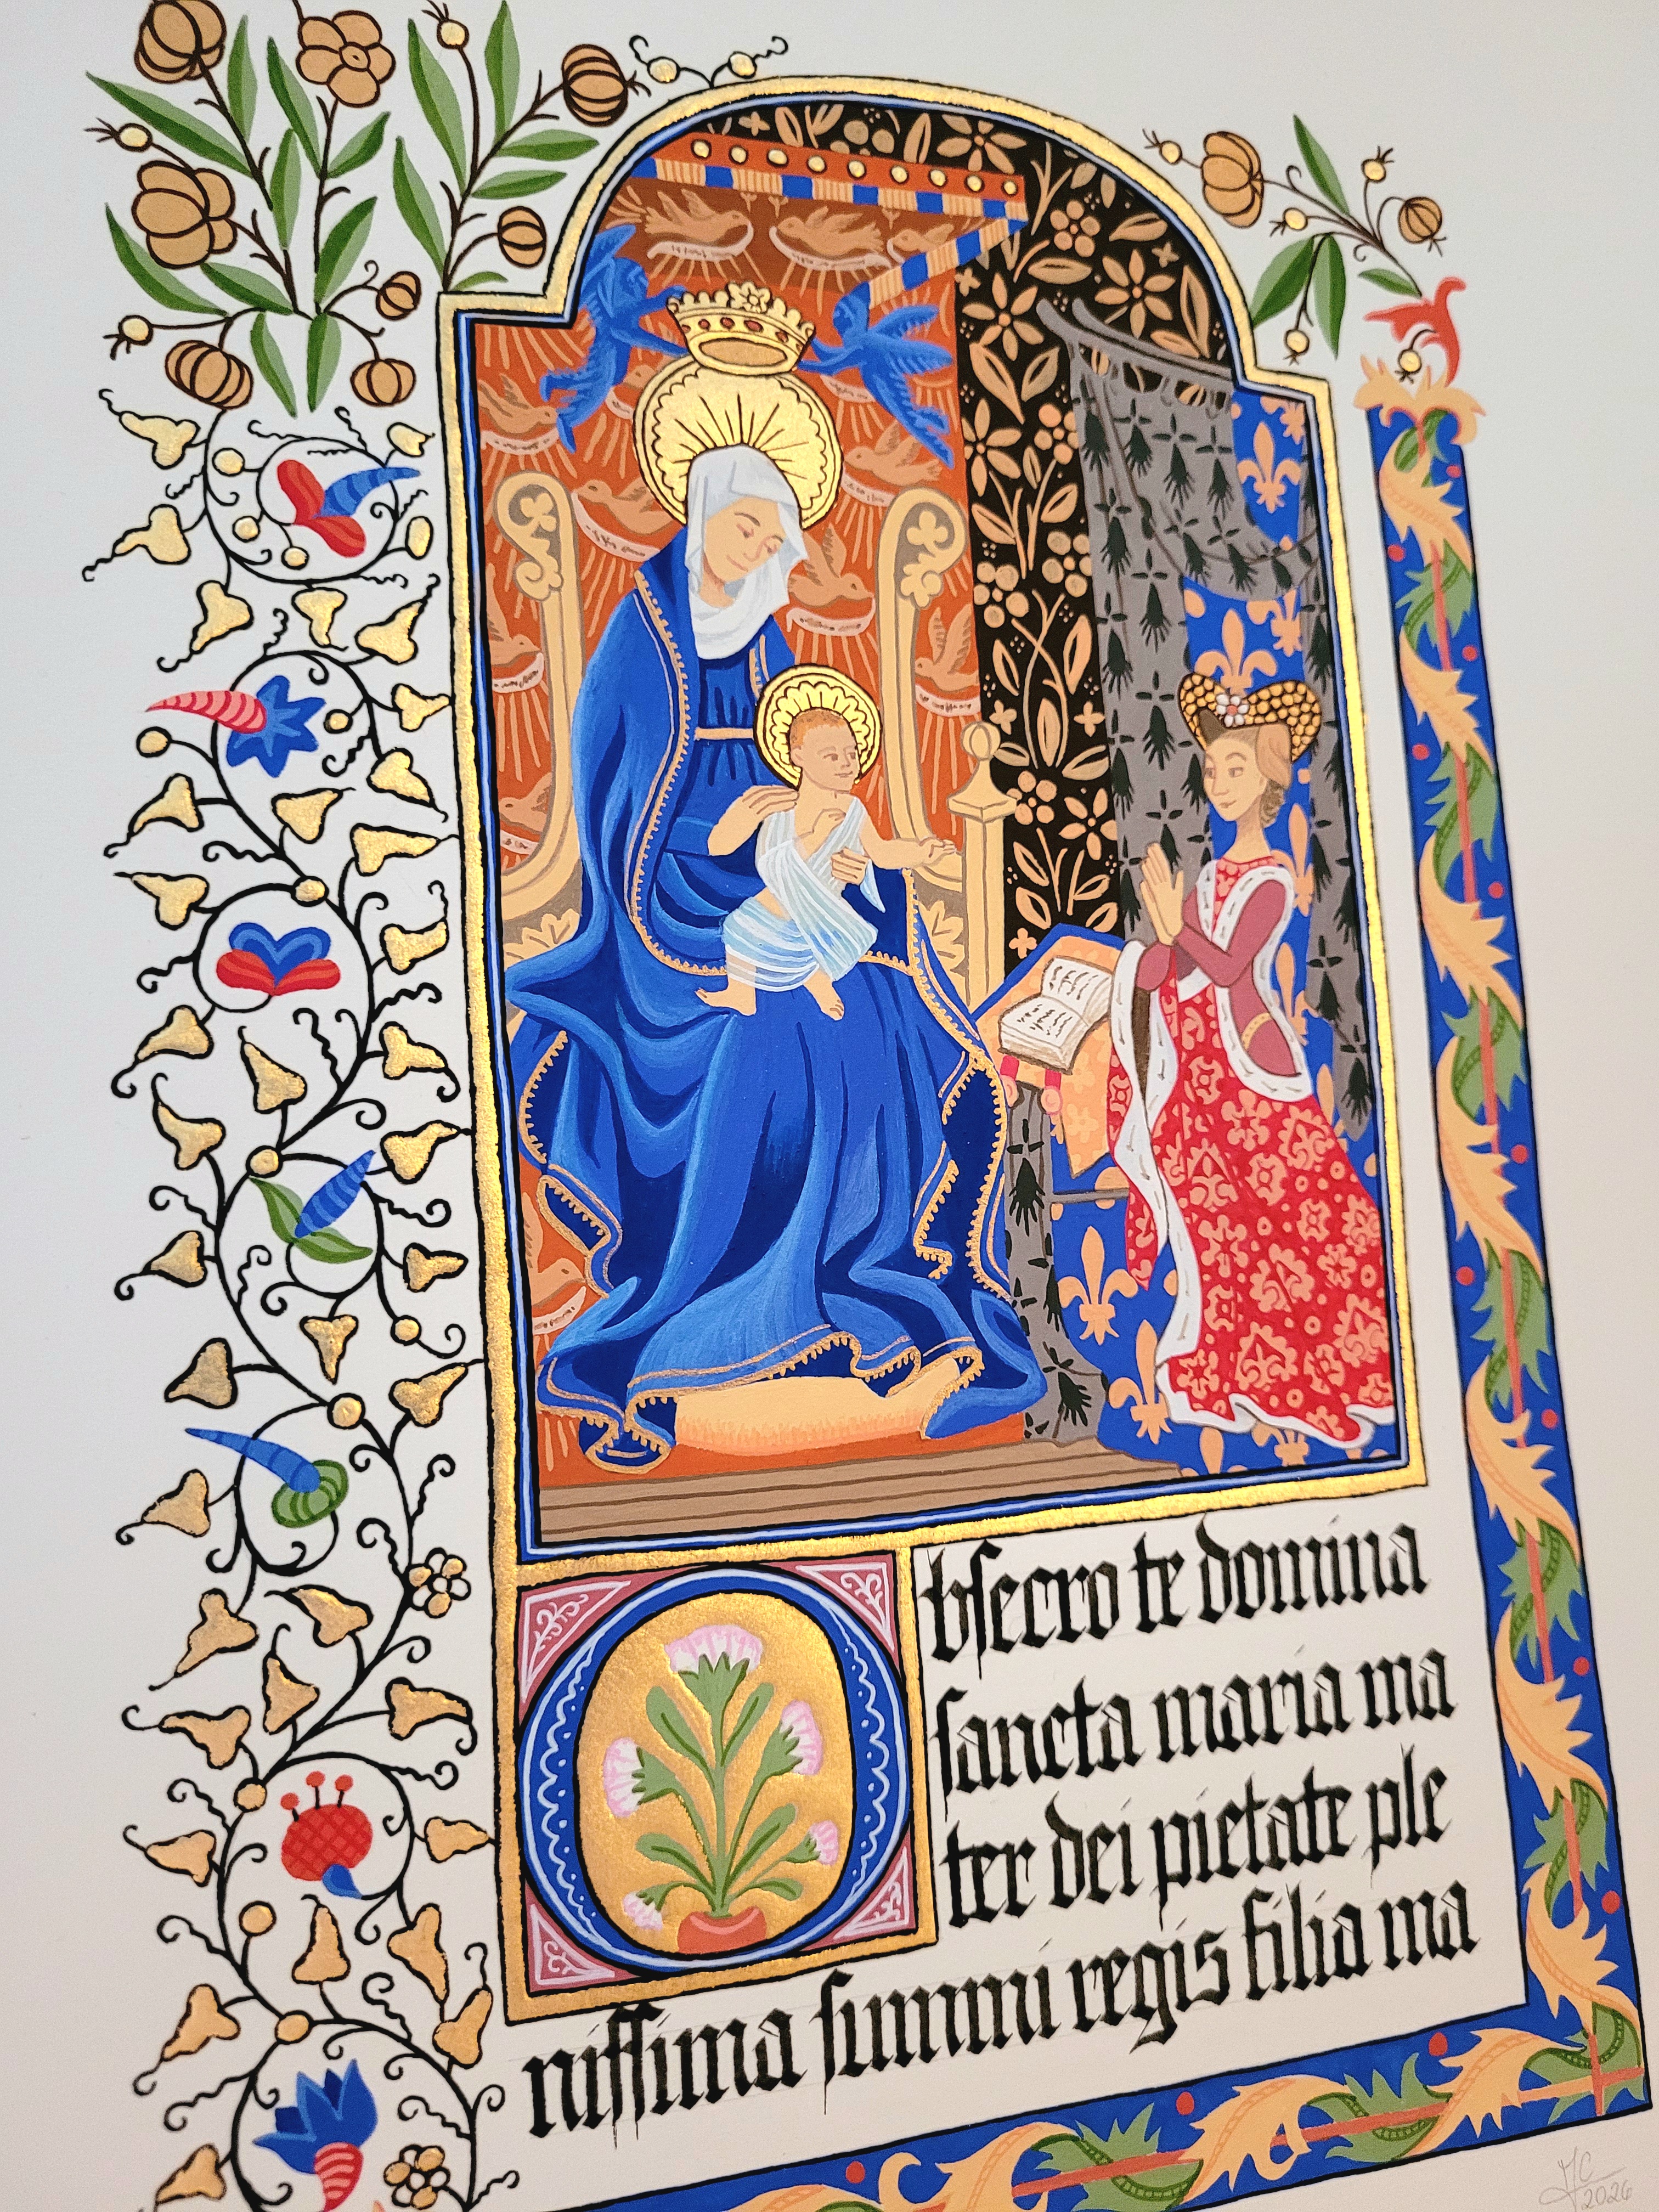 Obſecro te domina
ſancta maria ma
ter dei pietate ple
niſſima ſummi regis filia ma
JC
2026